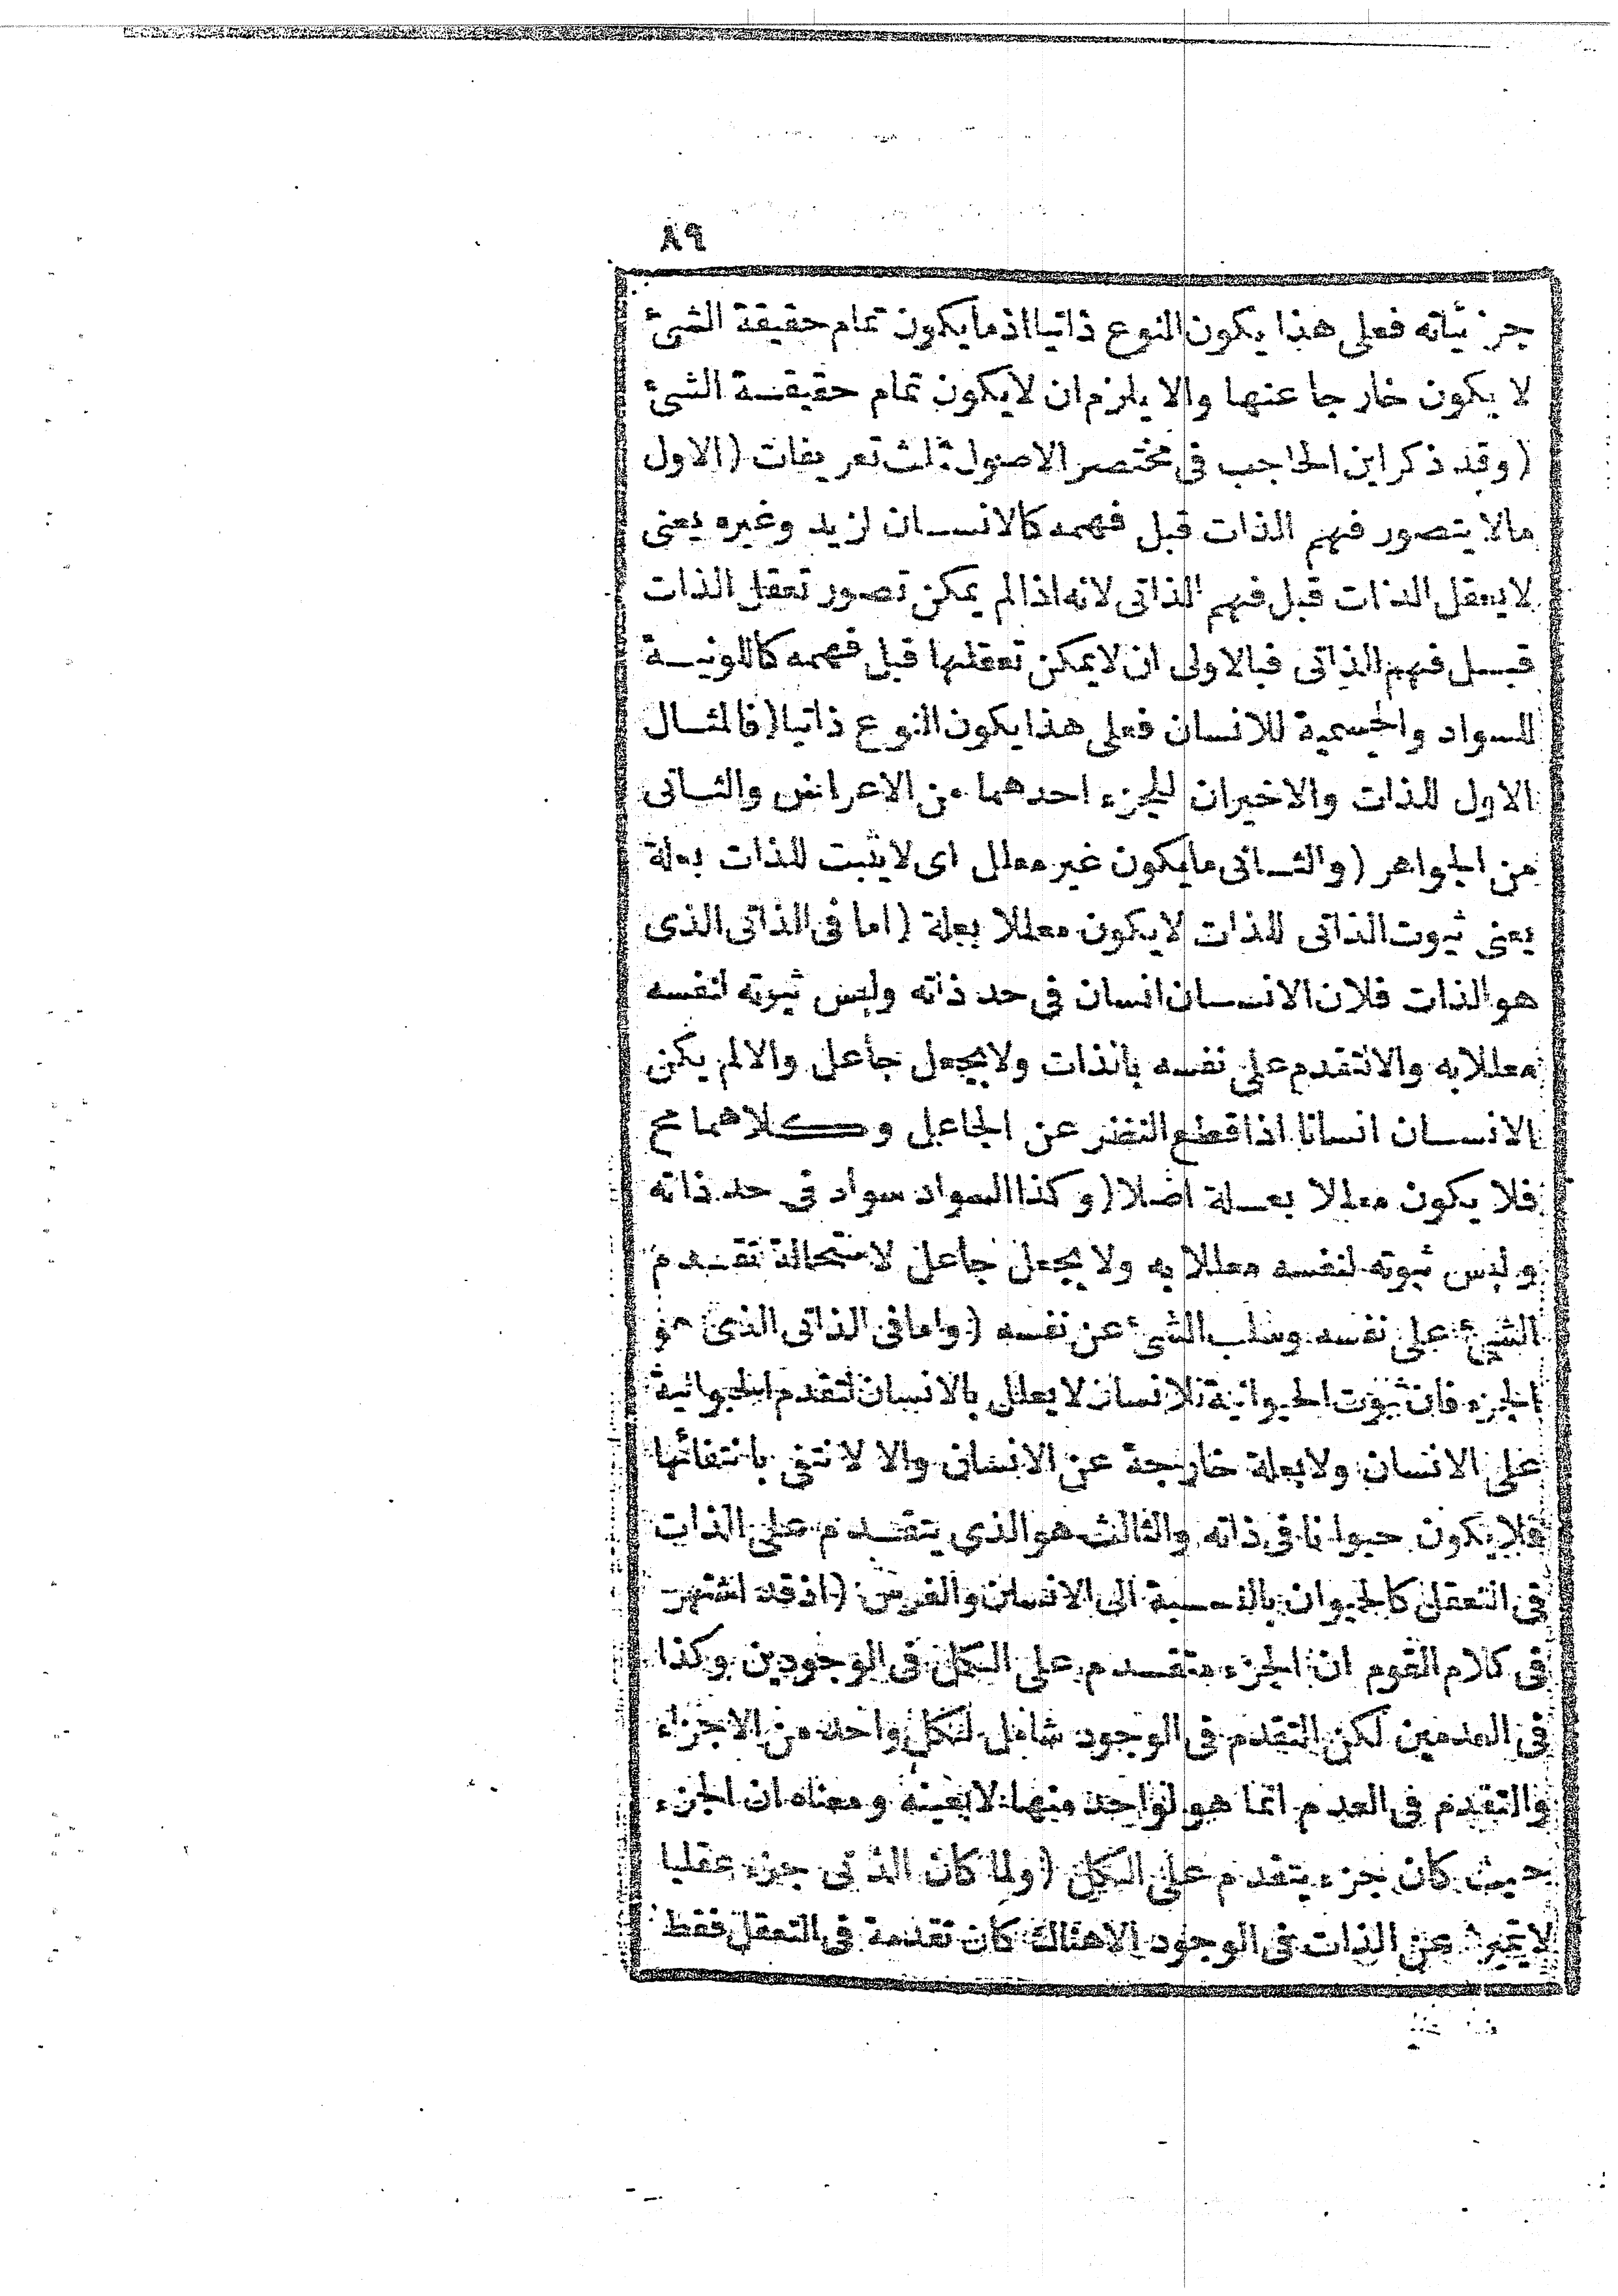 ٨٩
جزئياته فعلى هذا يكون النوع ذاتيا اذ ما يكون تمام حقيقة الشئ
لا يكون خارجا عنها والا يلزم ان لا يكون تمام حقيقة الشئ
(وقد ذكر ابن الحاجب فى مختصر الاصول ثلث تعريفات (الاول
مالا يتصور فهم الذات قبل فهمه كالانسان لزيد وغيره يعنى
لا يعقل الذات قبل فهم الذاتى لانه اذا لم يمكن تصور تعقل الذات
قبل فهم الذاتى فبالاولى ان لا يمكن تعقلها قبل فهمه كاللونية
للسواد والجسمية للانسان فعلى هذا يكون النوع ذاتيا (فالمثال
الاول للذات والاخيران للجزء احدهما من الاعراض والثانى
من الجواهر (والثانى ما يكون غير معلل اى لا يثبت للذات بعلة
يعنى ثبوت الذاتى للذات لا يكون معللا بعلة (اما فى الذاتى الذى
هو الذات فلان الانسان انسان فى حد ذاته وليس ثبوته لنفسه
معللا به والا لتقدم على نفسه بالذات ولا بجعل جاعل والا لم يكن
الانسان انسانا اذا قطع النظر عن الجاعل وكلاهما مح
فلا يكون معللا بعلة اصلا (وكذا السواد سواد فى حد ذاته
وليس ثبوته لنفسه معللا به ولا بجعل جاعل لاستحالة تقدم
الشئ على نفسه وسلب الشئ عن نفسه (واما فى الذاتى الذى هو
الجزء فان ثبوت الحيوانية للانسان لا يعلل بالانسان لتقدم الحيوانية
على الانسان ولا بعلة خارجة عن الانسان والا لانتفى بانتفائها
فلا يكون حيوانا فى ذاته والثالث هو الذى يتقدم على الذات
فى التعقل كالحيوان بالنسبة الى الانسان والفرس (اذ قد اشتهر
فى كلام القوم ان الجزء متقدم على الكل فى الوجودين وكذا
فى العدمين لكن التقدم فى الوجود شامل لكل واحد من الاجزاء
والتقدم فى العدم انما هو لواحد منها لا بعينه ومعناه ان الجزء
حيث كان جزء يتقدم على الكل (ولما كان الذاتى جزء عقليا
لا يتميز عن الذات فى الوجود الا هناك كان تقدمه فى التعقل فقط